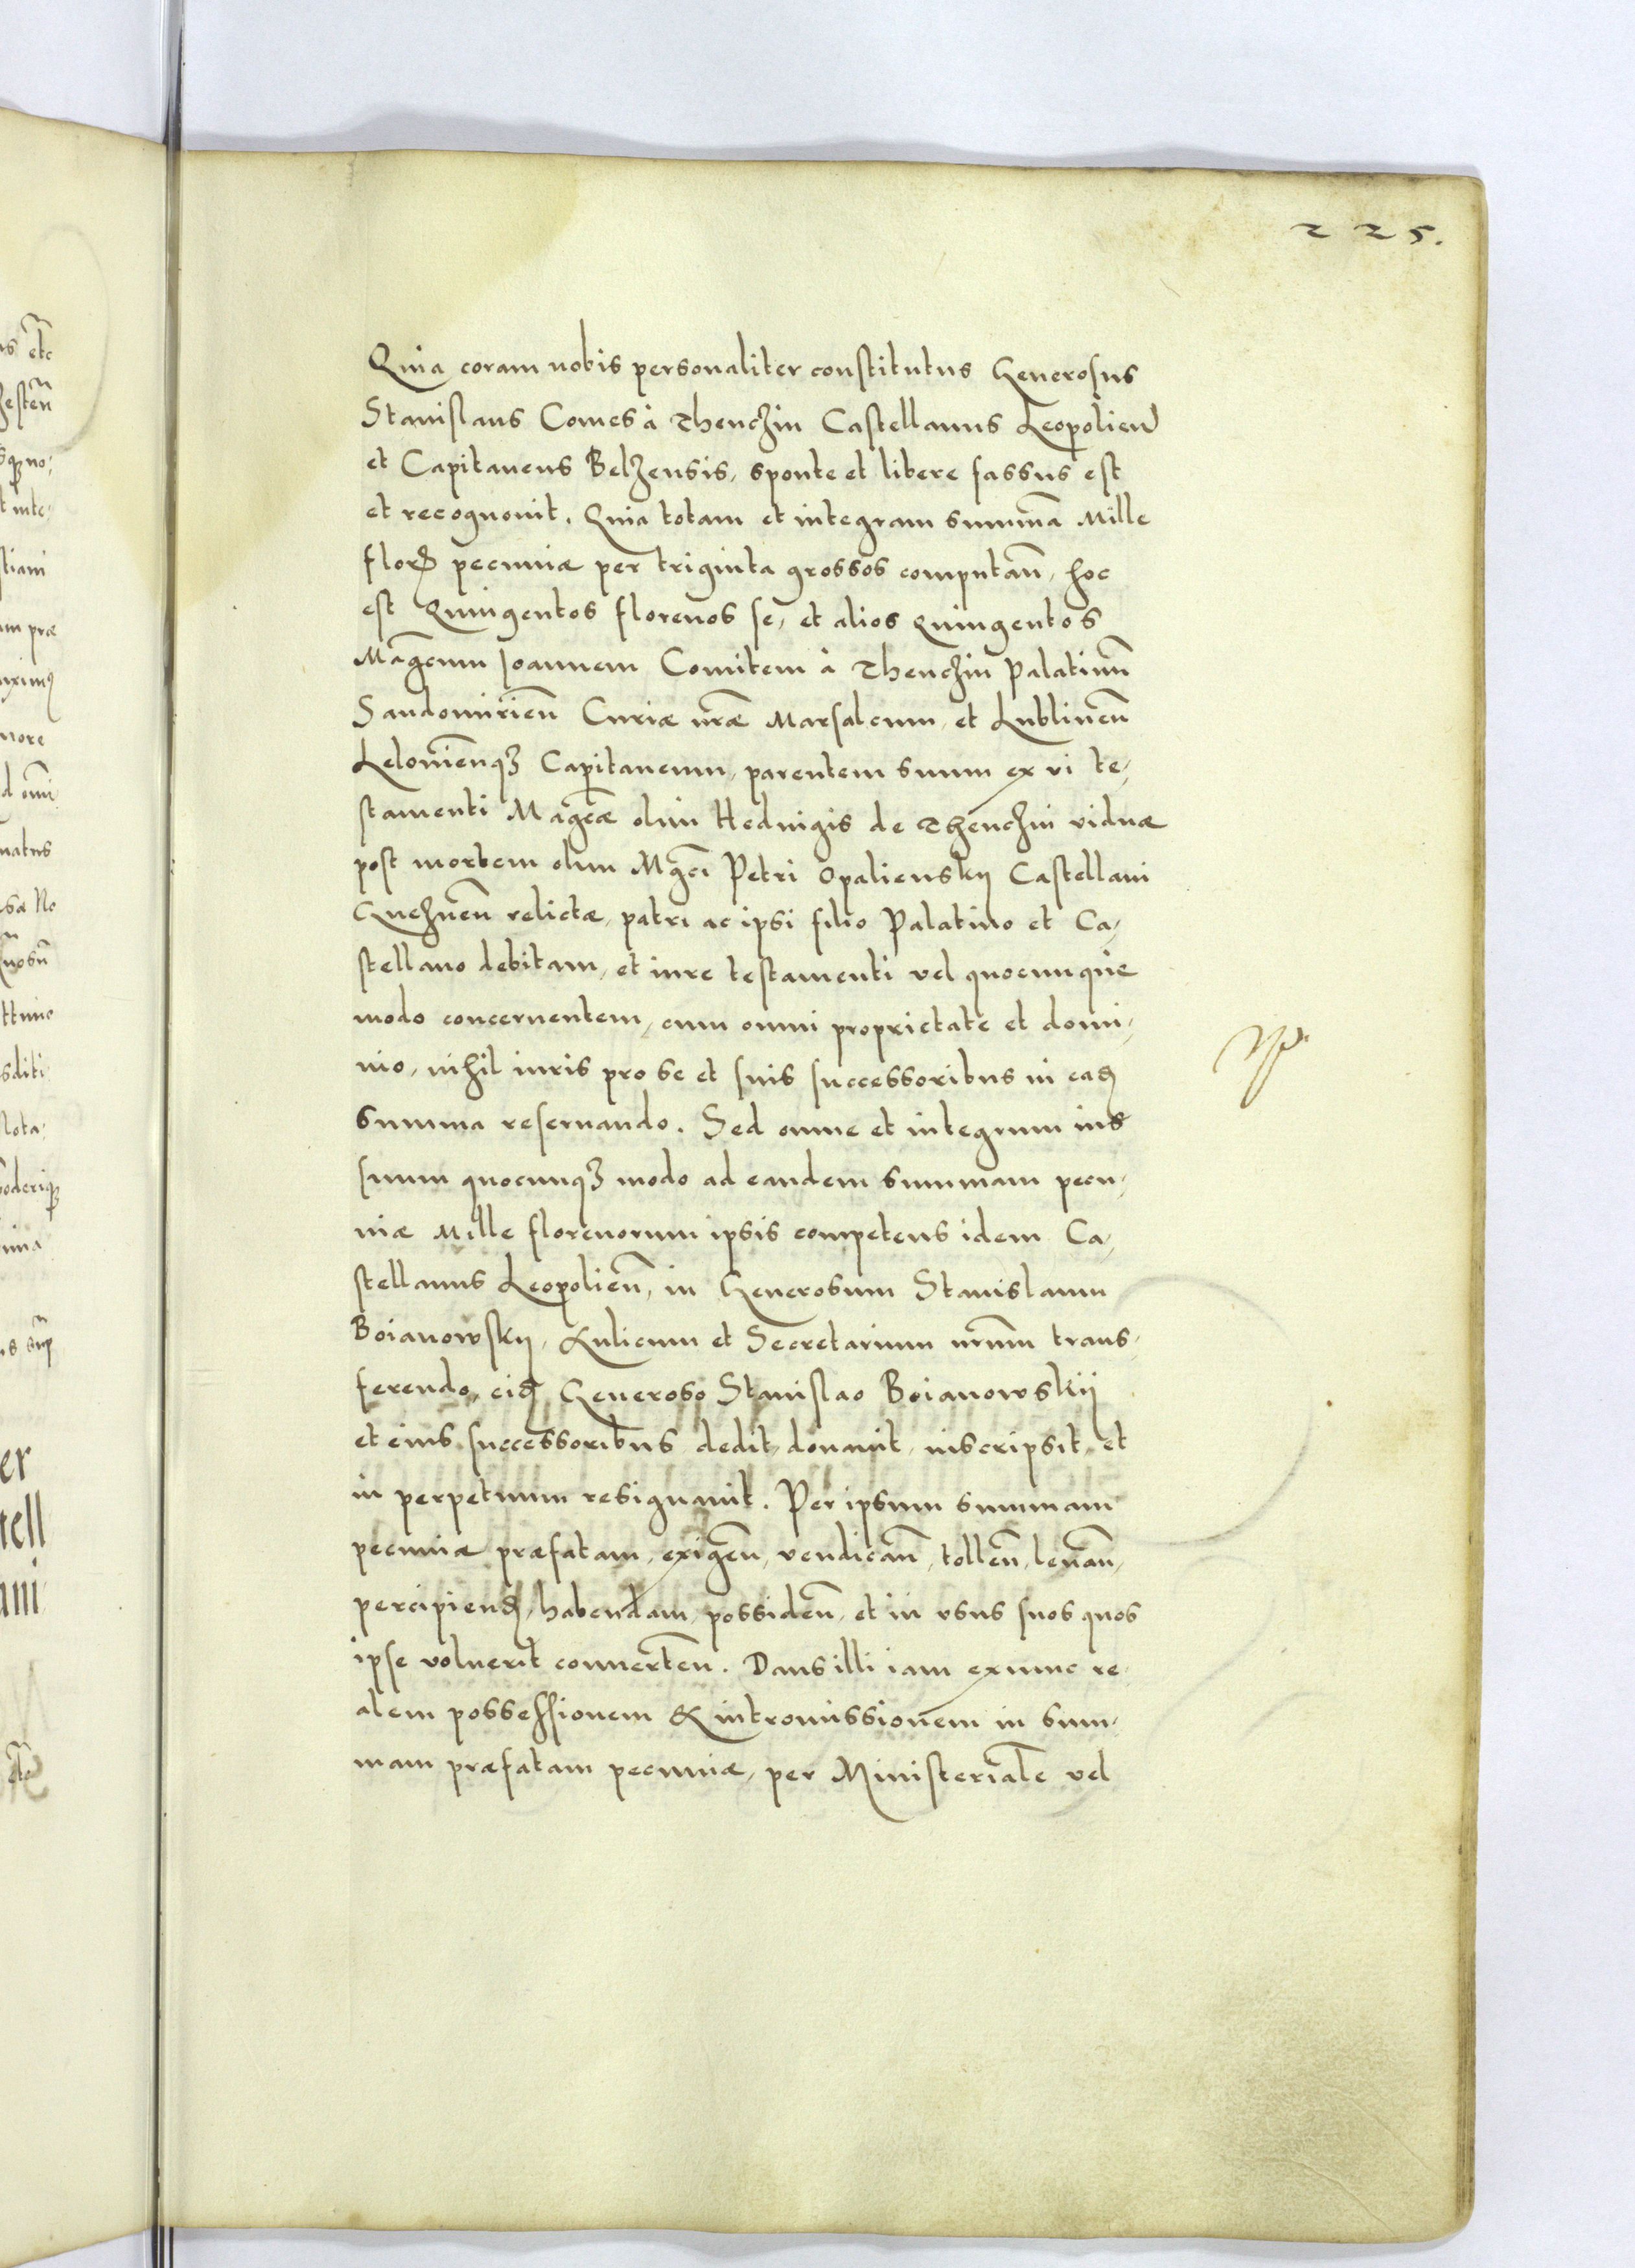 225.
Quia coram nobis personaliter constitutus Generosus
Stanislaus Comes à Thenczin Castellanus Leopolien̄
et Capitaneus Belzensis, sponte et libere fassus est
et recognouit. Quia totam et integram summā Mille
florꝭ pecuniæ per triginta grossos computan̄, hoc
est Quingentos florenos se, et alios Quingentos
Māgcum Joannem Comitem à Thenczin Palatinū
Sandomirien̄ Curiæ nr̄æ Marsalcum, et Lublinen̄
Lelouien̄qꝫ Capitaneum, parentem suum ex vi te,
stamenti Māgcæ olim Heduigis de Thenczin viduæ
post mortem olim Mgc̄i Petri Opalienskij Castellani
Gneznen̄ relictæ, patri ac ipsi filio Palatino et Ca,
stellano debitam, et iure testamenti vel quocunque
modo concernentem, cum omni proprietate et domi,
nio, nihil iuris pro se et suis successoribus in eadꝫ
summa reseruando. Sed omne et integrum ius
suum quocunqꝫ modo ad eandem summam pecu,
niæ Mille florenorum ipsis competens idem Ca,
stellanus Leopolien̄, in Generosum Stanislaum
Boianowskij, Aulicum et Secretarium nr̄um trans,
ferendo, eidꝫ Generoso Stanislao Boianowskij
et eius successoribus dedit, donauit, inscripsit, et
in perpetuum resignauit. Per ipsum summam
pecuniæ præfatam, exigen̄, vendican̄, tollen̄, leuan̄,
percipiendꝫ, habendam, possiden̄, et in vsus suos quos
ipse voluerit conuerten̄. Dans illi iam exnunc re,
alem possessionem & intromissionem in sum,
mam præfatam pecuniæ, per Ministerialē vel